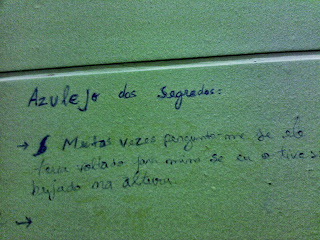 Azulejo dos Segredos:
→ Muitas vezes pergunto-me se ele
teria voltado para mim se eu o tives
beijado na altura.
→